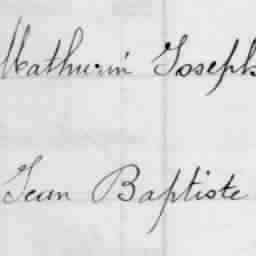 Mathurin Joseph
Jean Baptiste